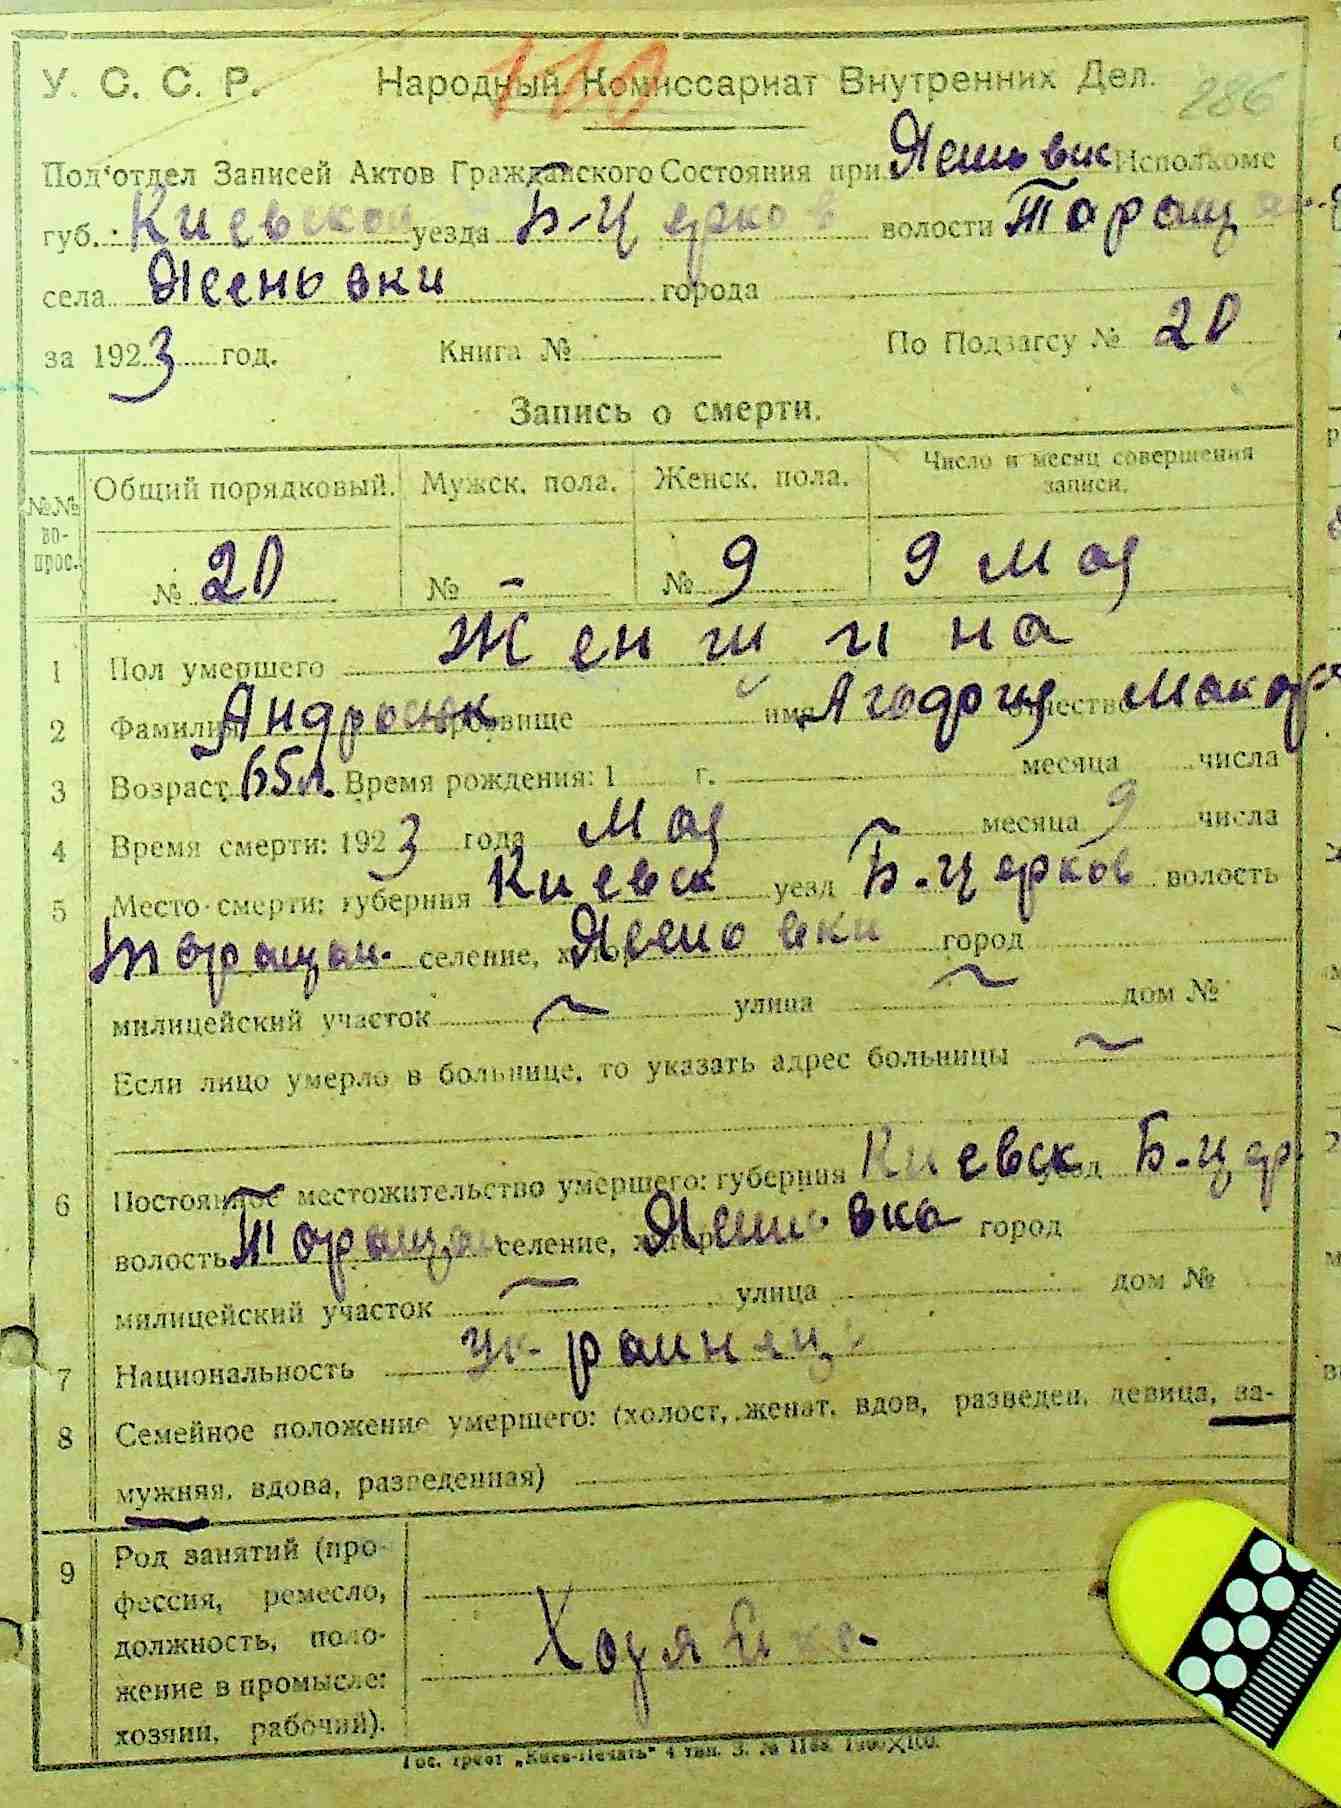 У. С. С. Р. Народный Комиссариат Внутренних Дел. 286
Под'отдел Записей Актов Гражданского Состояния при Исполкоме
губ. Киевской уезда Б-Церков волости Таращан.
села города
за 1923 год. Книга № По Подзагсу № 20
Запись о смерти.
№.№ во-прос. Общий порядковый. Мужск. пола. Женск. пола. Число и месяц совершения записи.
№ 20 № - № 9 9 Мая
1 Пол умершего Женщина
2 Фамилия Андросюк прозвище имя отчество Макар
3 Возраст 65 л. Время рождения: 1 г. месяца числа
4 Время смерти: 1923 года Мая месяца 9 числа
5 Место смерти: губерния Киевск уезд Б.Церков волость
Таращан. селение, город
милицейский участок ~ улица ~ дом №
Если лицо умерло в больнице, то указать адрес больницы ~
6 Постоянное местожительство умершего: губерния Киевск уезд Б.Цер.
волость Таращан селение, город
милицейский участок ~ улица дом №
7 Национальность Украинец
8 Семейное положение умершего: (холост, женат, вдов, разведен, девица, за-
мужняя, вдова, разведенная)
9 Род занятий (про-
фессия, ремесло,
должность, поло-
жение в промысле:
хозяин, рабочий).
Хозяйка
Гос. трест „Киев-Печать" 4 тип. З. № 1188.